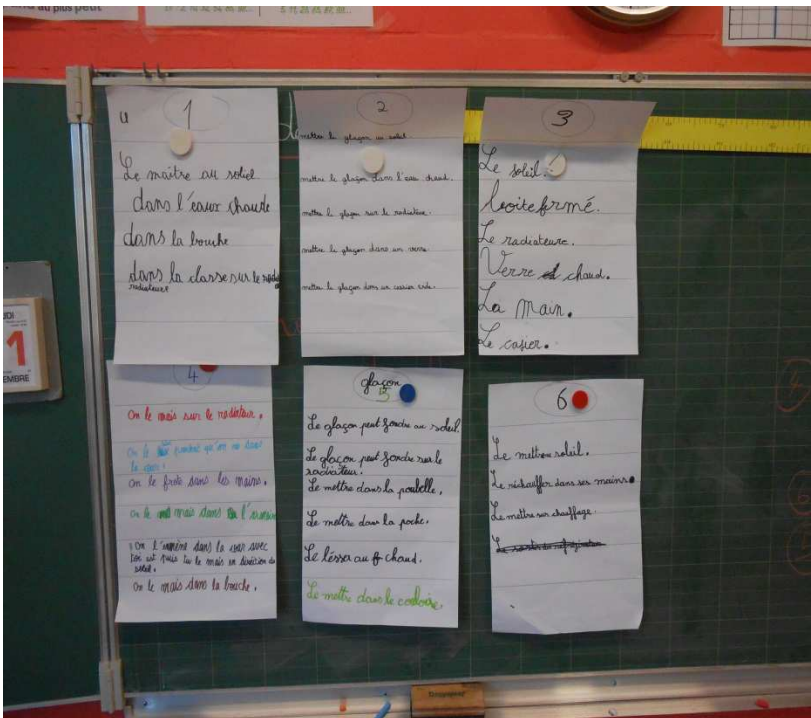 au plus petit
1
Le maitre au soliel
dans l'eaux chaude
dans la bouche
dans la classe sur le
radiateure
2
mettre le glaçon au soleil.
mettre le glaçon dans l'eau chaud.
mettre le glaçon sur le radiatère.
mettre le glaçon dans un verre.
mettre le glaçon dans un casier vide.
3
Le soleil.
boite fermé.
Le radiateure.
Verre chaud.
La main.
Le casier.
UDI
1
EMBRE
4
on le mais sur le radiateur.
on le pendant qu'on va dans
le cour.
on le frote dans les mains.
on le mais dans l'
on l'emmène dans la cour avec
toi est puis tu le mais en direction du
soleil.
on le mais dans la bouche.
glaçon
5
Le glaçon peut fondre au soleil.
Le glaçon peut fondre sur le
radiateur.
Le mettre dans la poubelle.
Le mettre dans la poche.
Le léssa au chaud.
Le mettre dans le couloire.
6
Le mettre soleil.
Le réchauffer dans ses mains.
Le mettre sur chauffage.